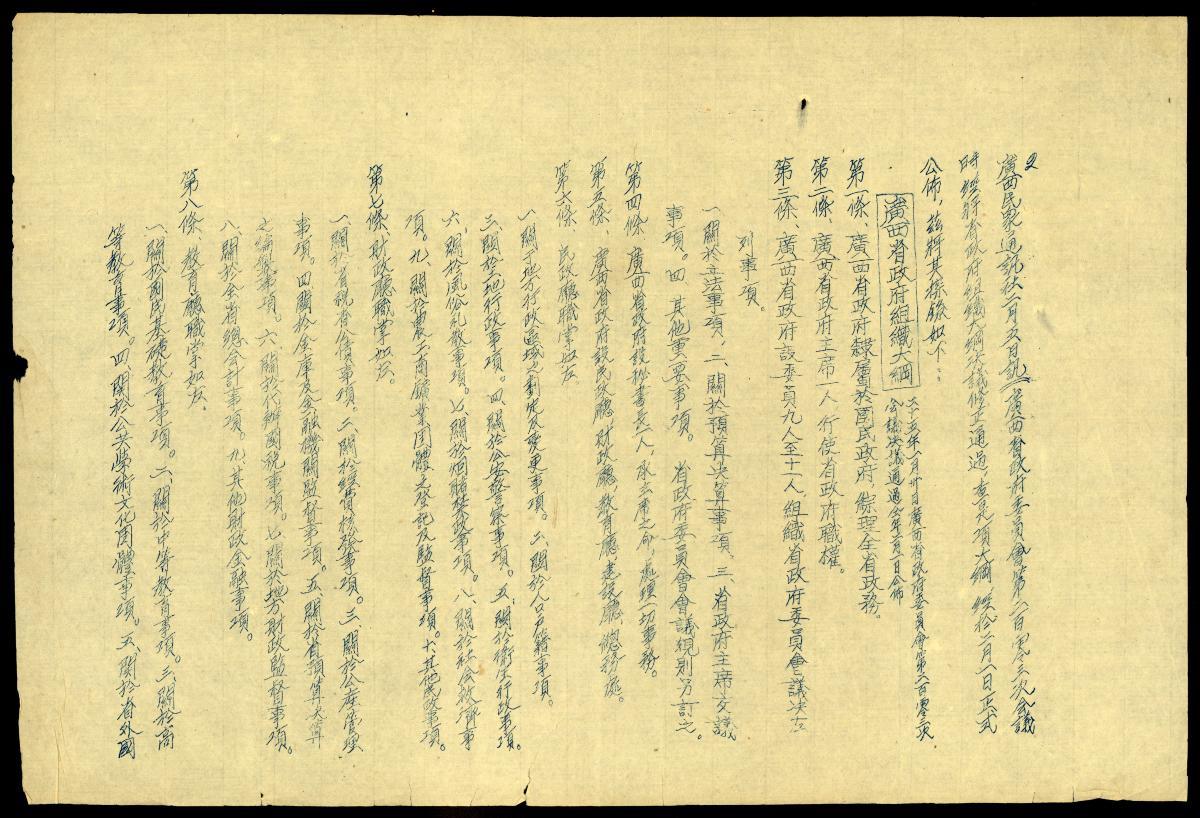 2
廣西民眾通訊社二月五日訊 廣西省政府委員會第二百零三次會議
時經將省政府組織大綱決議修正通過 查是項大綱經於二月一日正式
公佈,茲將其探錄如下:
廣西省政府組織大綱
二十五年一月廿日廣西省政府委員會第二百零三次
會議決議通過仝年二月一日公佈
第一條、廣西省政府隸屬於國民政府,綜理全省政務。
第二條、廣西省政府主席一人 行使省政府職權。
第三條、廣西省政府設委員九人至十一人 組織省政府委員會 議决左
列事項。
一、關於立法事項、二、關於預算决算事項、三、省政府主席交議
事項。四、其他重要事項。 省政府委員會會議規則另訂之。
第四條、廣西省政府設秘書長一人,承主席之命,處理一切事務。
第五條、廣西省政府設民政廳 財政廳 教育廳 建設廳 總務處。
第六條、民政廳職掌如左
一、關于地方行政區域之劃定及變更事項。二、關於人口户籍事項。
三、關於土地行政事項。四、關於公安警察事項。五、關於衛生行政事項。
六、關於風俗礼教事項。七、關於烟賭禁政事項。八、關於社会救濟事
項。九、關於農工商鑛業团體之登記及監督事項。十、其他民政事項。
第七條、財政廳職掌如左。
一、關於省税省公債事項。二、關於經費核發事項。三、關於公産管理
事項。四、關於金庫及金融機關監督事項。五、關於省預算决算
之編製事項。六、關於代辦國税事項。七、關於地方財政監督事項。
八、關於全省總会計事項。九、其他財政金融事項。
第八條、教育廳職掌如左。
一、關於國民基礎教育事項。二、關於中等教育事項。三、關於高
等教育事項。四、關於公共學術文化团體事項。五、関於省外國